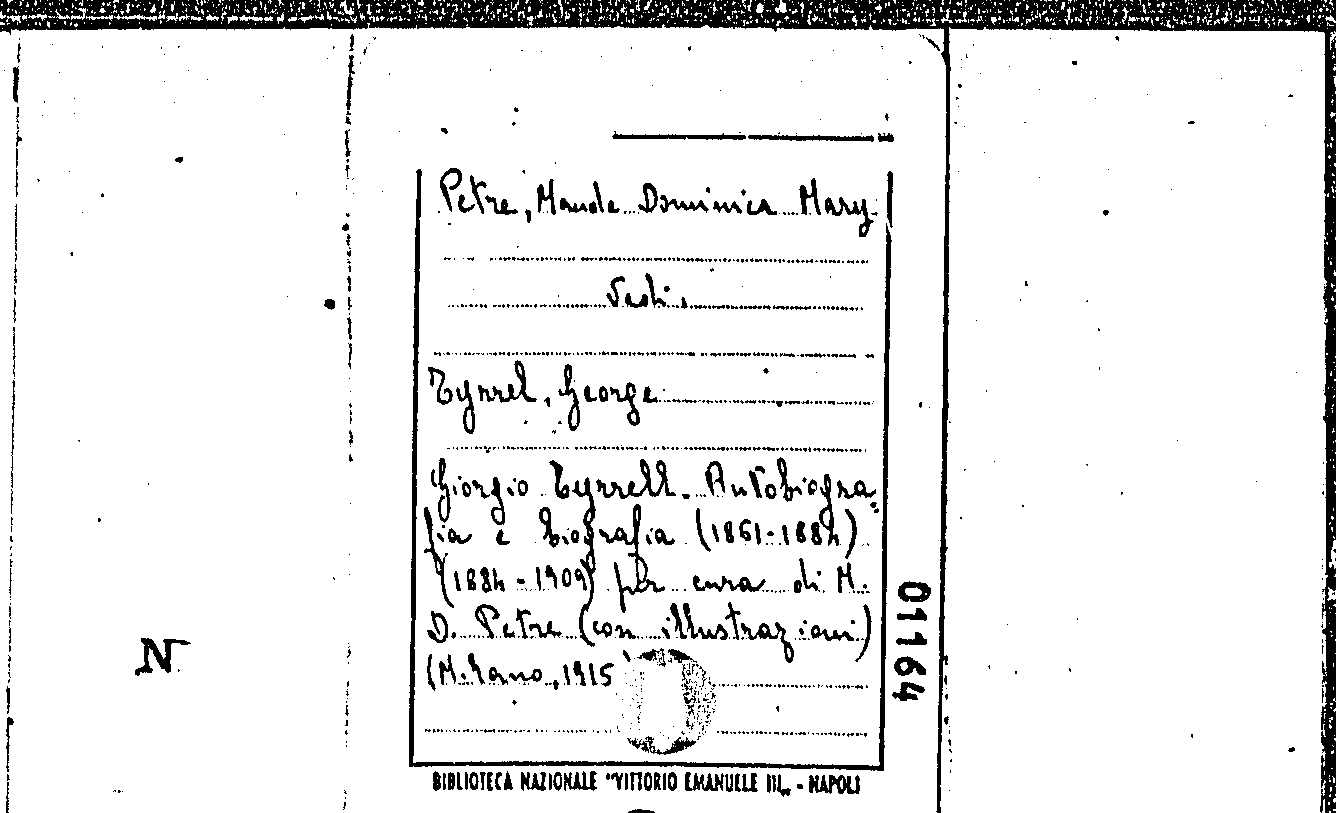 Petre, Maude Dominica Mary
Vedi.
Tyrrel, George
Giorgio Tyrrell. Autobiogra=
fia e biografia (1861-1884)
(1884-1909) per cura di M.
D. Petre (con illustrazioni)
(Milano, 1915
01164
N
BIBLIOTECA NAZIONALE "VITTORIO EMANUELE III„ - NAPOLI